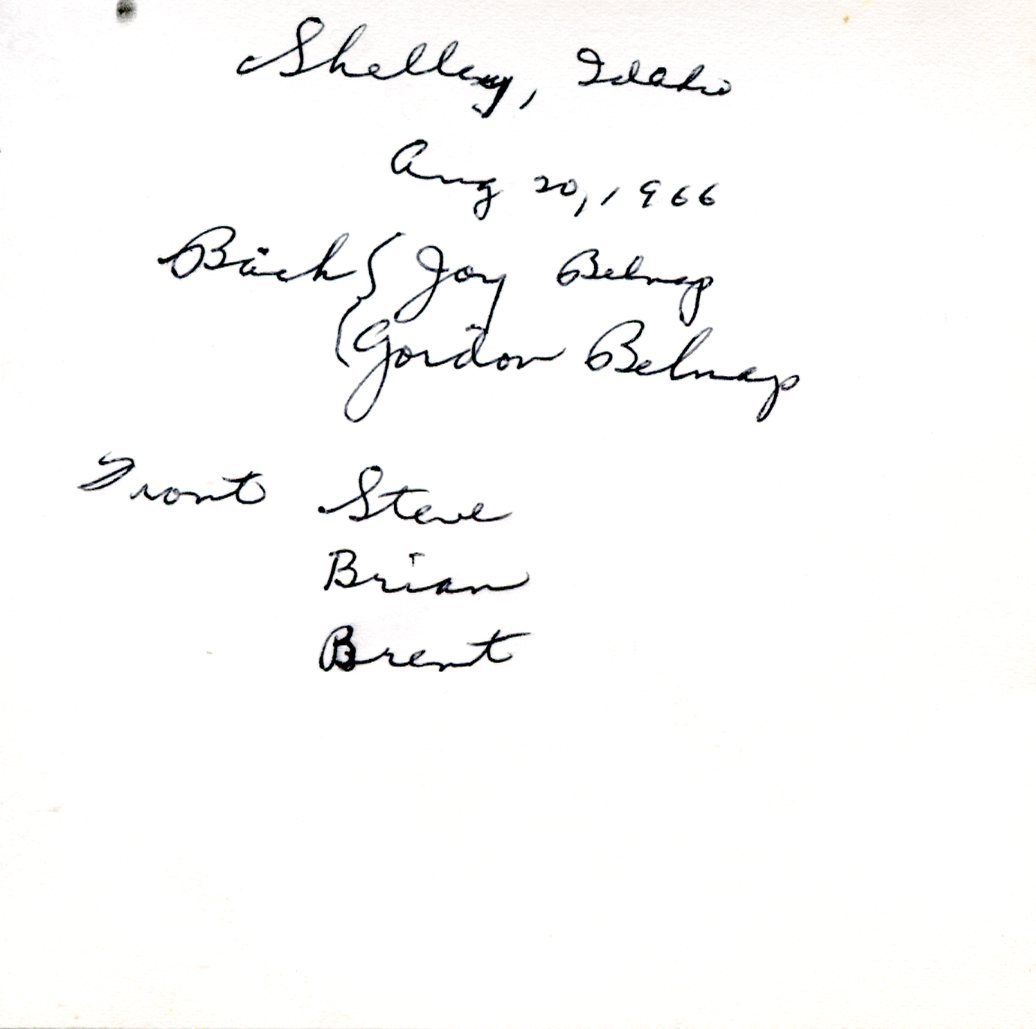 Shelley, Idaho
Aug 20, 1966
Back { Joy Belnap
{ Gordon Belnap
Front Steve
Brian
Brent